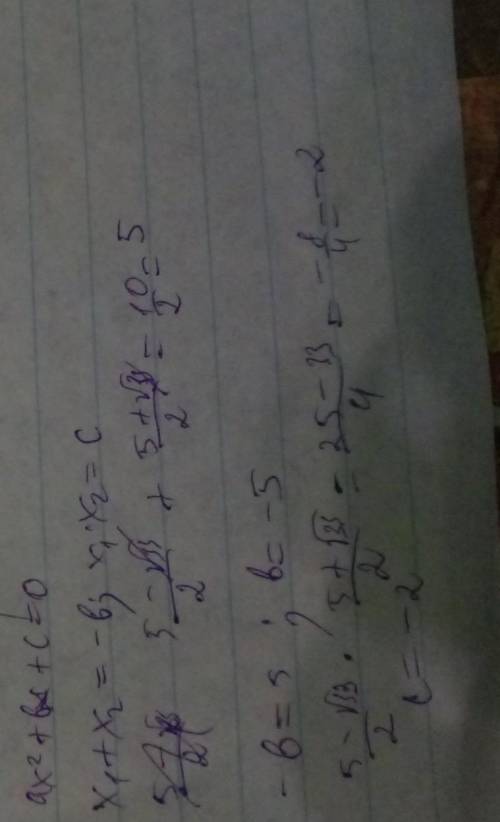 ax² + bx + c = 0
x₁ + x₂ = -b; x₁·x₂ = c
(5 - √33)/2 + (5 + √33)/2 = 10/2 = 5
-b = 5; b = -5
(5 - √33)/2 · (5 + √33)/2 = (25 - 33)/4 = -8/4 = -2
c = -2